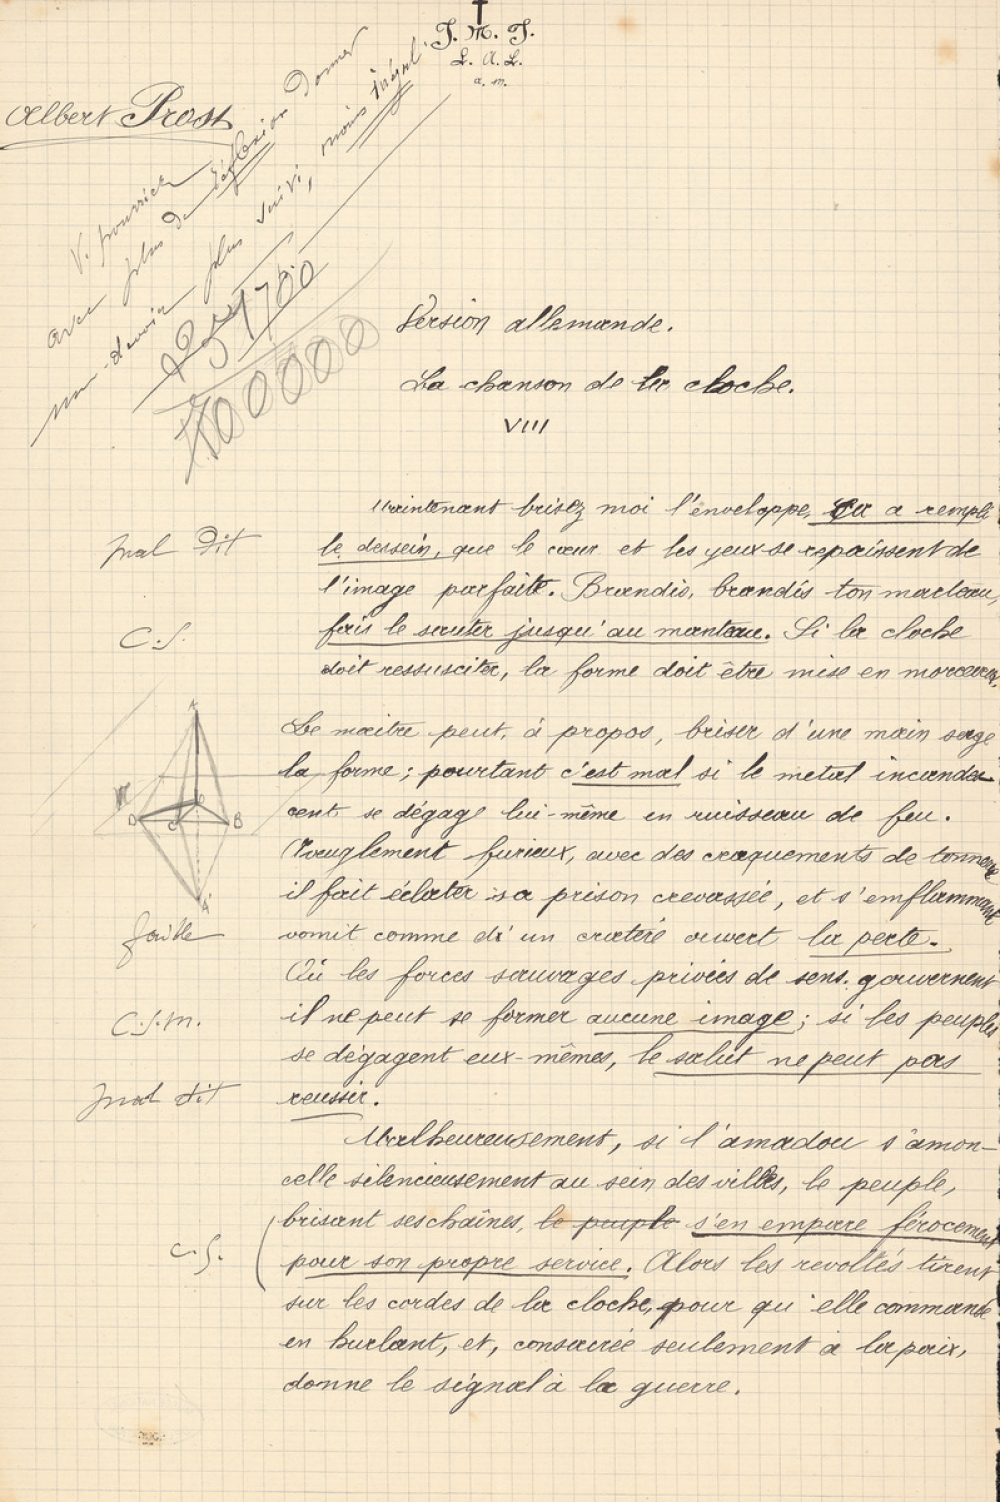 J. M. J.
L. A. L.
a. m.
Albert Prost
V. pourriez
avec plus de réflexion donner
un devoir plus suivi, moins inégal.
Version allemande.
La chanson de la cloche.
VIII
Maintenant brisez moi l'enveloppe, a rempli
mal dit
le dessein, que le cœur et les yeux se repaissent de
l'image parfaite. Brandis, brandis ton marteau,
C.S.
fais le sauter jusqu'au manteau. Si la cloche
doit ressusciter, la forme doit être mise en morceaux.
Le maitre peut, à propos, briser d'une main sage
la forme; pourtant c'est mal si le metal incandes-
cent se dégage lui-même en ruisseau de feu.
A
D C B
A'
Aveuglement furieux, avec des craquements de tonnerre
il fait éclater sa prison crevassée, et s'enflammant
faible
vomit comme d'un cratère ouvert la perte.
Où les forces sauvages privées de sens gouvernent
C.S.m.
il ne peut se former aucune image; si les peuples
se dégagent eux-mêmes, le salut ne peut pas
mal dit
reussir.
Malheureusement, si l'amadou s'amon-
celle silencieusement au sein des villes, le peuple,
brisant ses chaînes, le peuple s'en empare férocement
C.S.
pour son propre service. Alors les revoltés tirent
sur les cordes de la cloche, pour qu'elle commande
en hurlant, et, consacrée seulement à la paix,
donne le signal à la guerre.